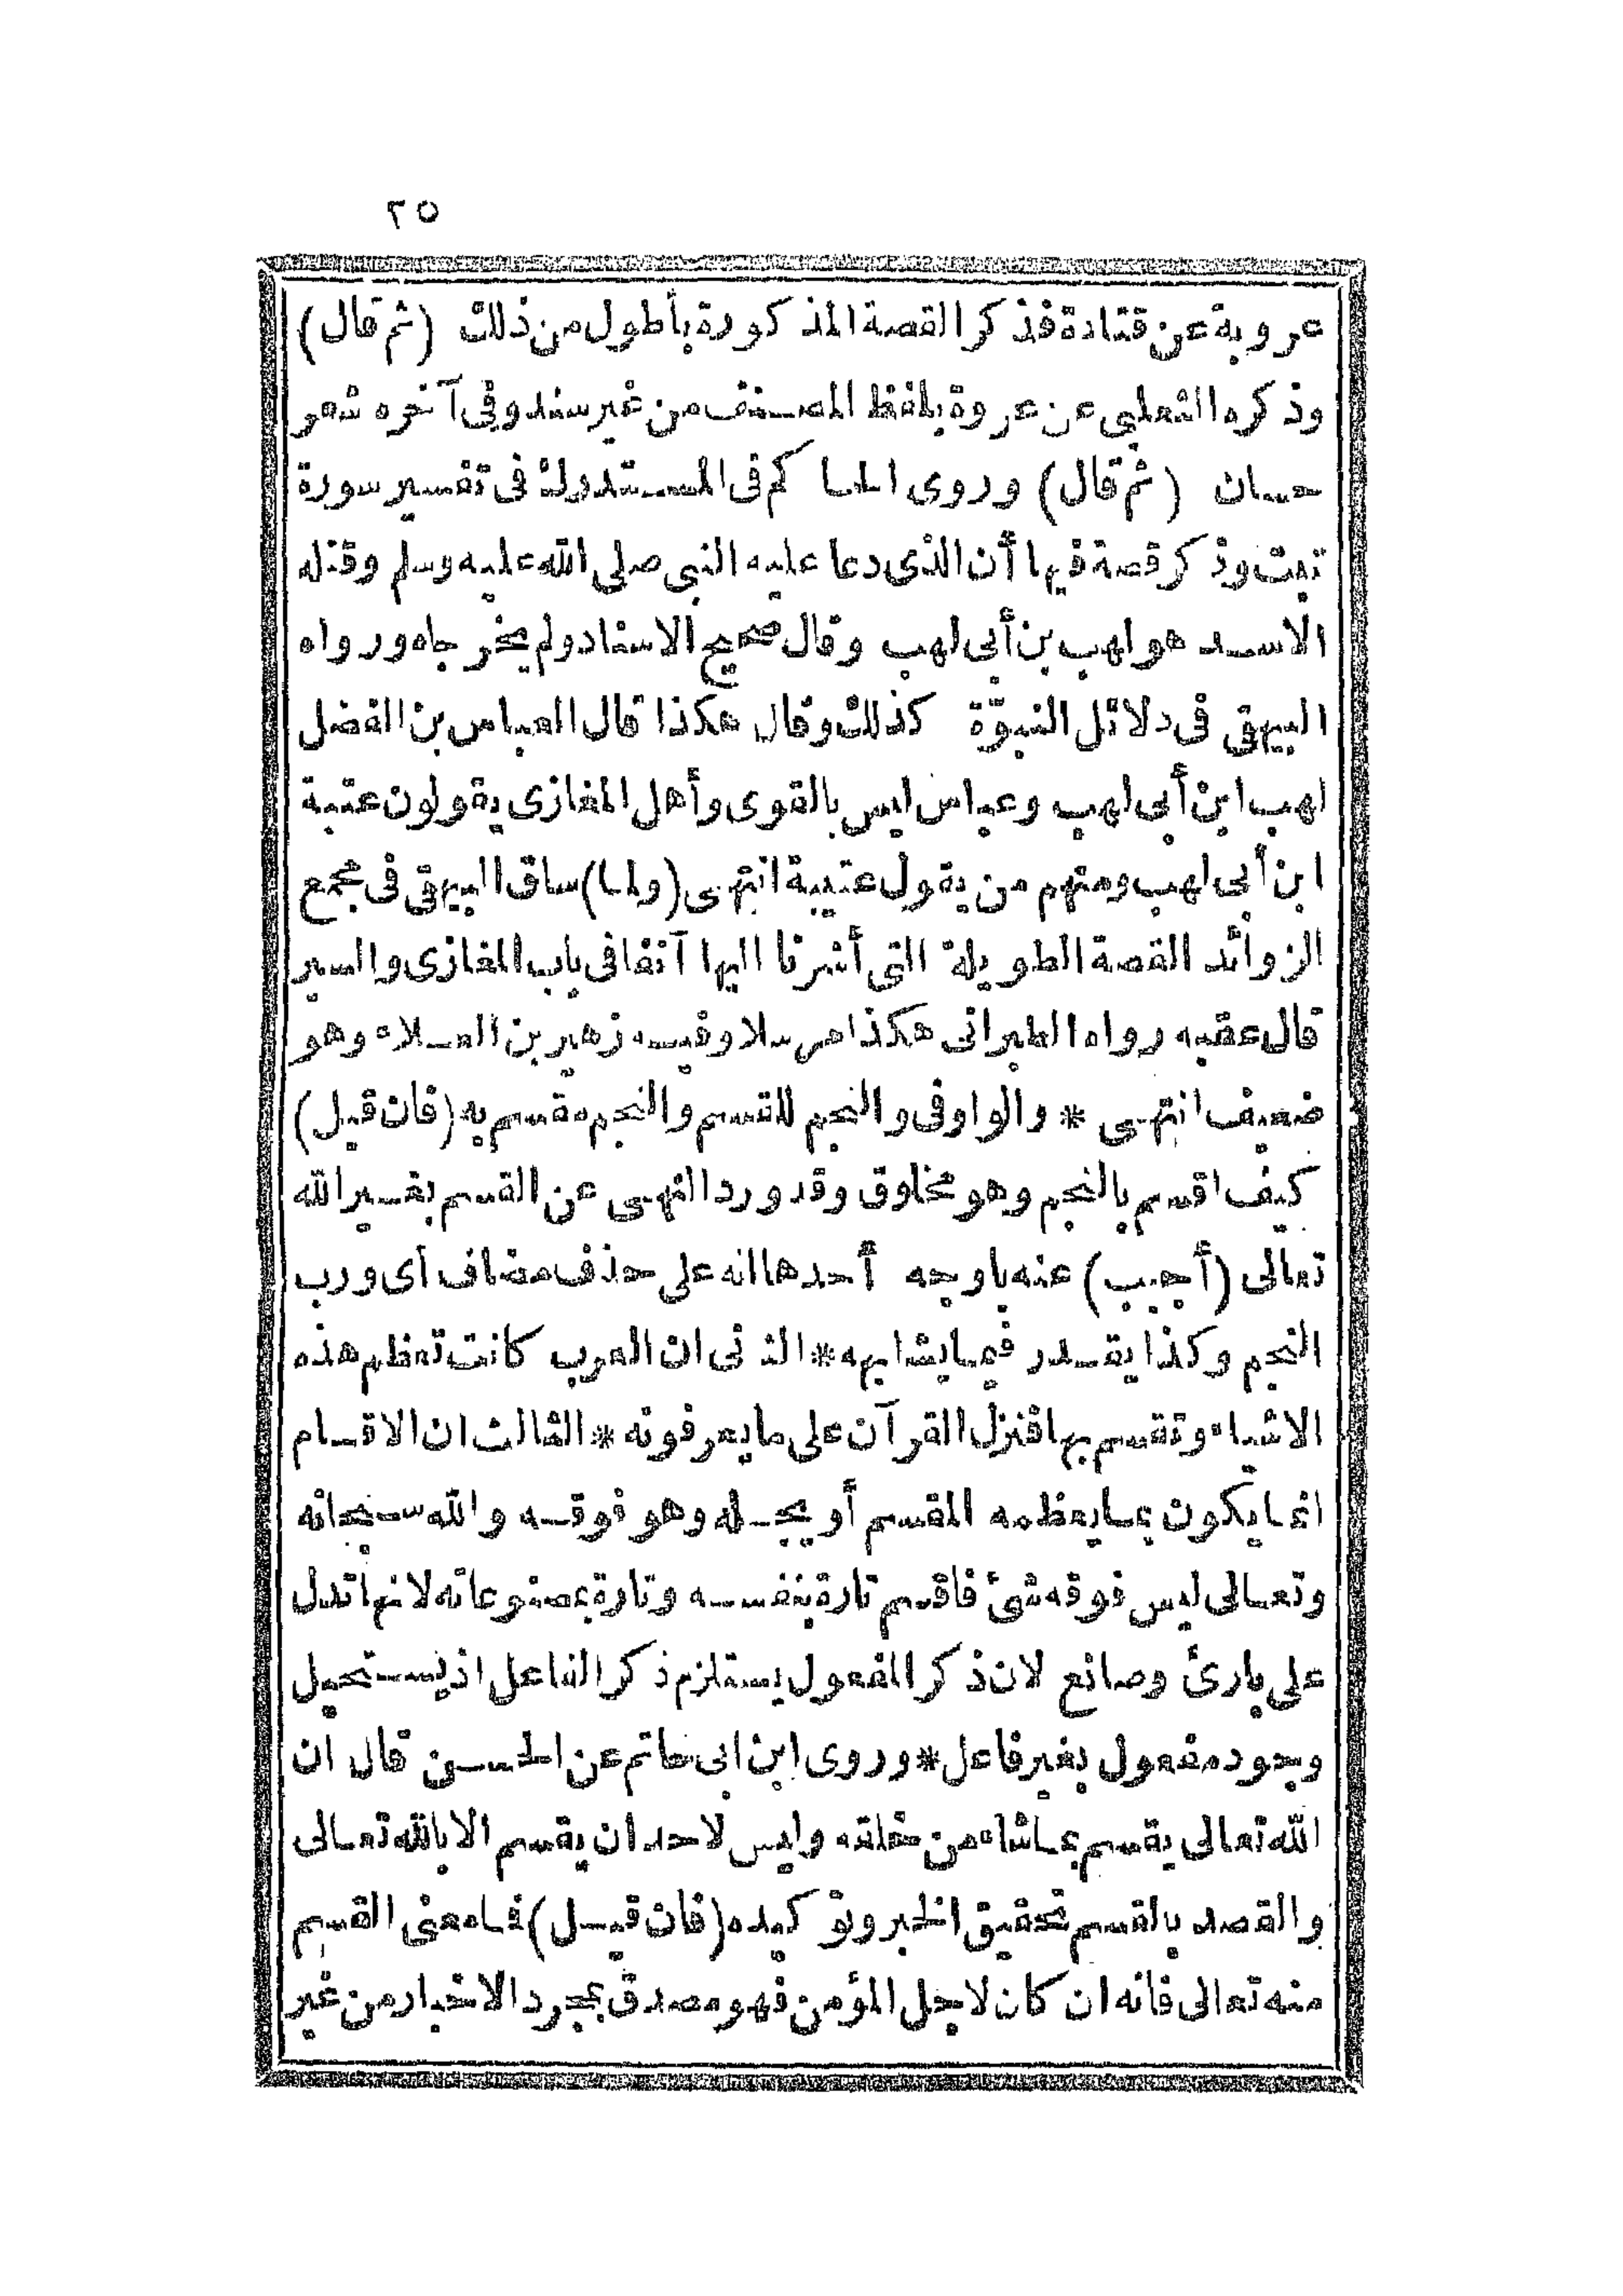 ٢٥
عروبة عن قتادة فذكر القصة المذكورة بأطول من ذلك (ثم قال)
وذكره الثعلبي عن عروة بلفظ المصنف من غير سند وفي آخره شعر
حسان (ثم قال) وروى الحاكم في المستدرك في تفسير سورة
تبت وذكر قصة فيها أن الذى دعا عليه النبي صلى الله عليه وسلم وقتله
الاسد هو لهب بن أبى لهب وقال صحيح الاسناد ولم يخرجاه ورواه
البيهقى فى دلائل النبوّة كذلك وقال هكذا قال العباس بن الفضل
لهب ابن أبى لهب وعباس ليس بالقوى وأهل المغازى يقولون عتبة
ابن أبى لهب ومنهم من يقول عتيبة انتهى (ولما) ساق البيهقى فى مجمع
الزوائد القصة الطويلة التى أشرنا اليها آنفا فى باب المغازى والسير
قال عقبه رواه الطبرانى هكذا مرسلا وفيه زهير بن العلاء وهو
ضعيف انتهى * والواو فى والنجم للقسم والنجم مقسم به (فان قيل)
كيف اقسم بالنجم وهو مخلوق وقد ورد النهى عن القسم بغير الله
تعالى (أجيب) عنه باوجه أحدها انه على حذف مضاف أى ورب
النجم وكذا يقدر فيما يشابهه * الثانى ان العرب كانت تعظم هذه
الاشياء وتقسم بها فنزل القرآن على ما يعرفونه * الثالث ان الاقسام
انما يكون بما يعظمه المقسم أو يجله وهو فوقه والله سبحانه
وتعالى ليس فوقه شئ فاقسم تارة بنفسه وتارة بمصنوعاته لانها تدل
على بارئ وصانع لان ذكر المفعول يستلزم ذكر الفاعل اذ يستحيل
وجود مفعول بغير فاعل * وروى ابن ابى حاتم عن الحسن قال ان
الله تعالى يقسم بما شاء من خلقه وليس لاحد ان يقسم الا بالله تعالى
والقصد بالقسم تحقيق الخبر وتوكيده (فان قيل) فما معنى القسم
منه تعالى فانه ان كان لاجل المؤمن فهو مصدق بمجرد الاخبار من غير